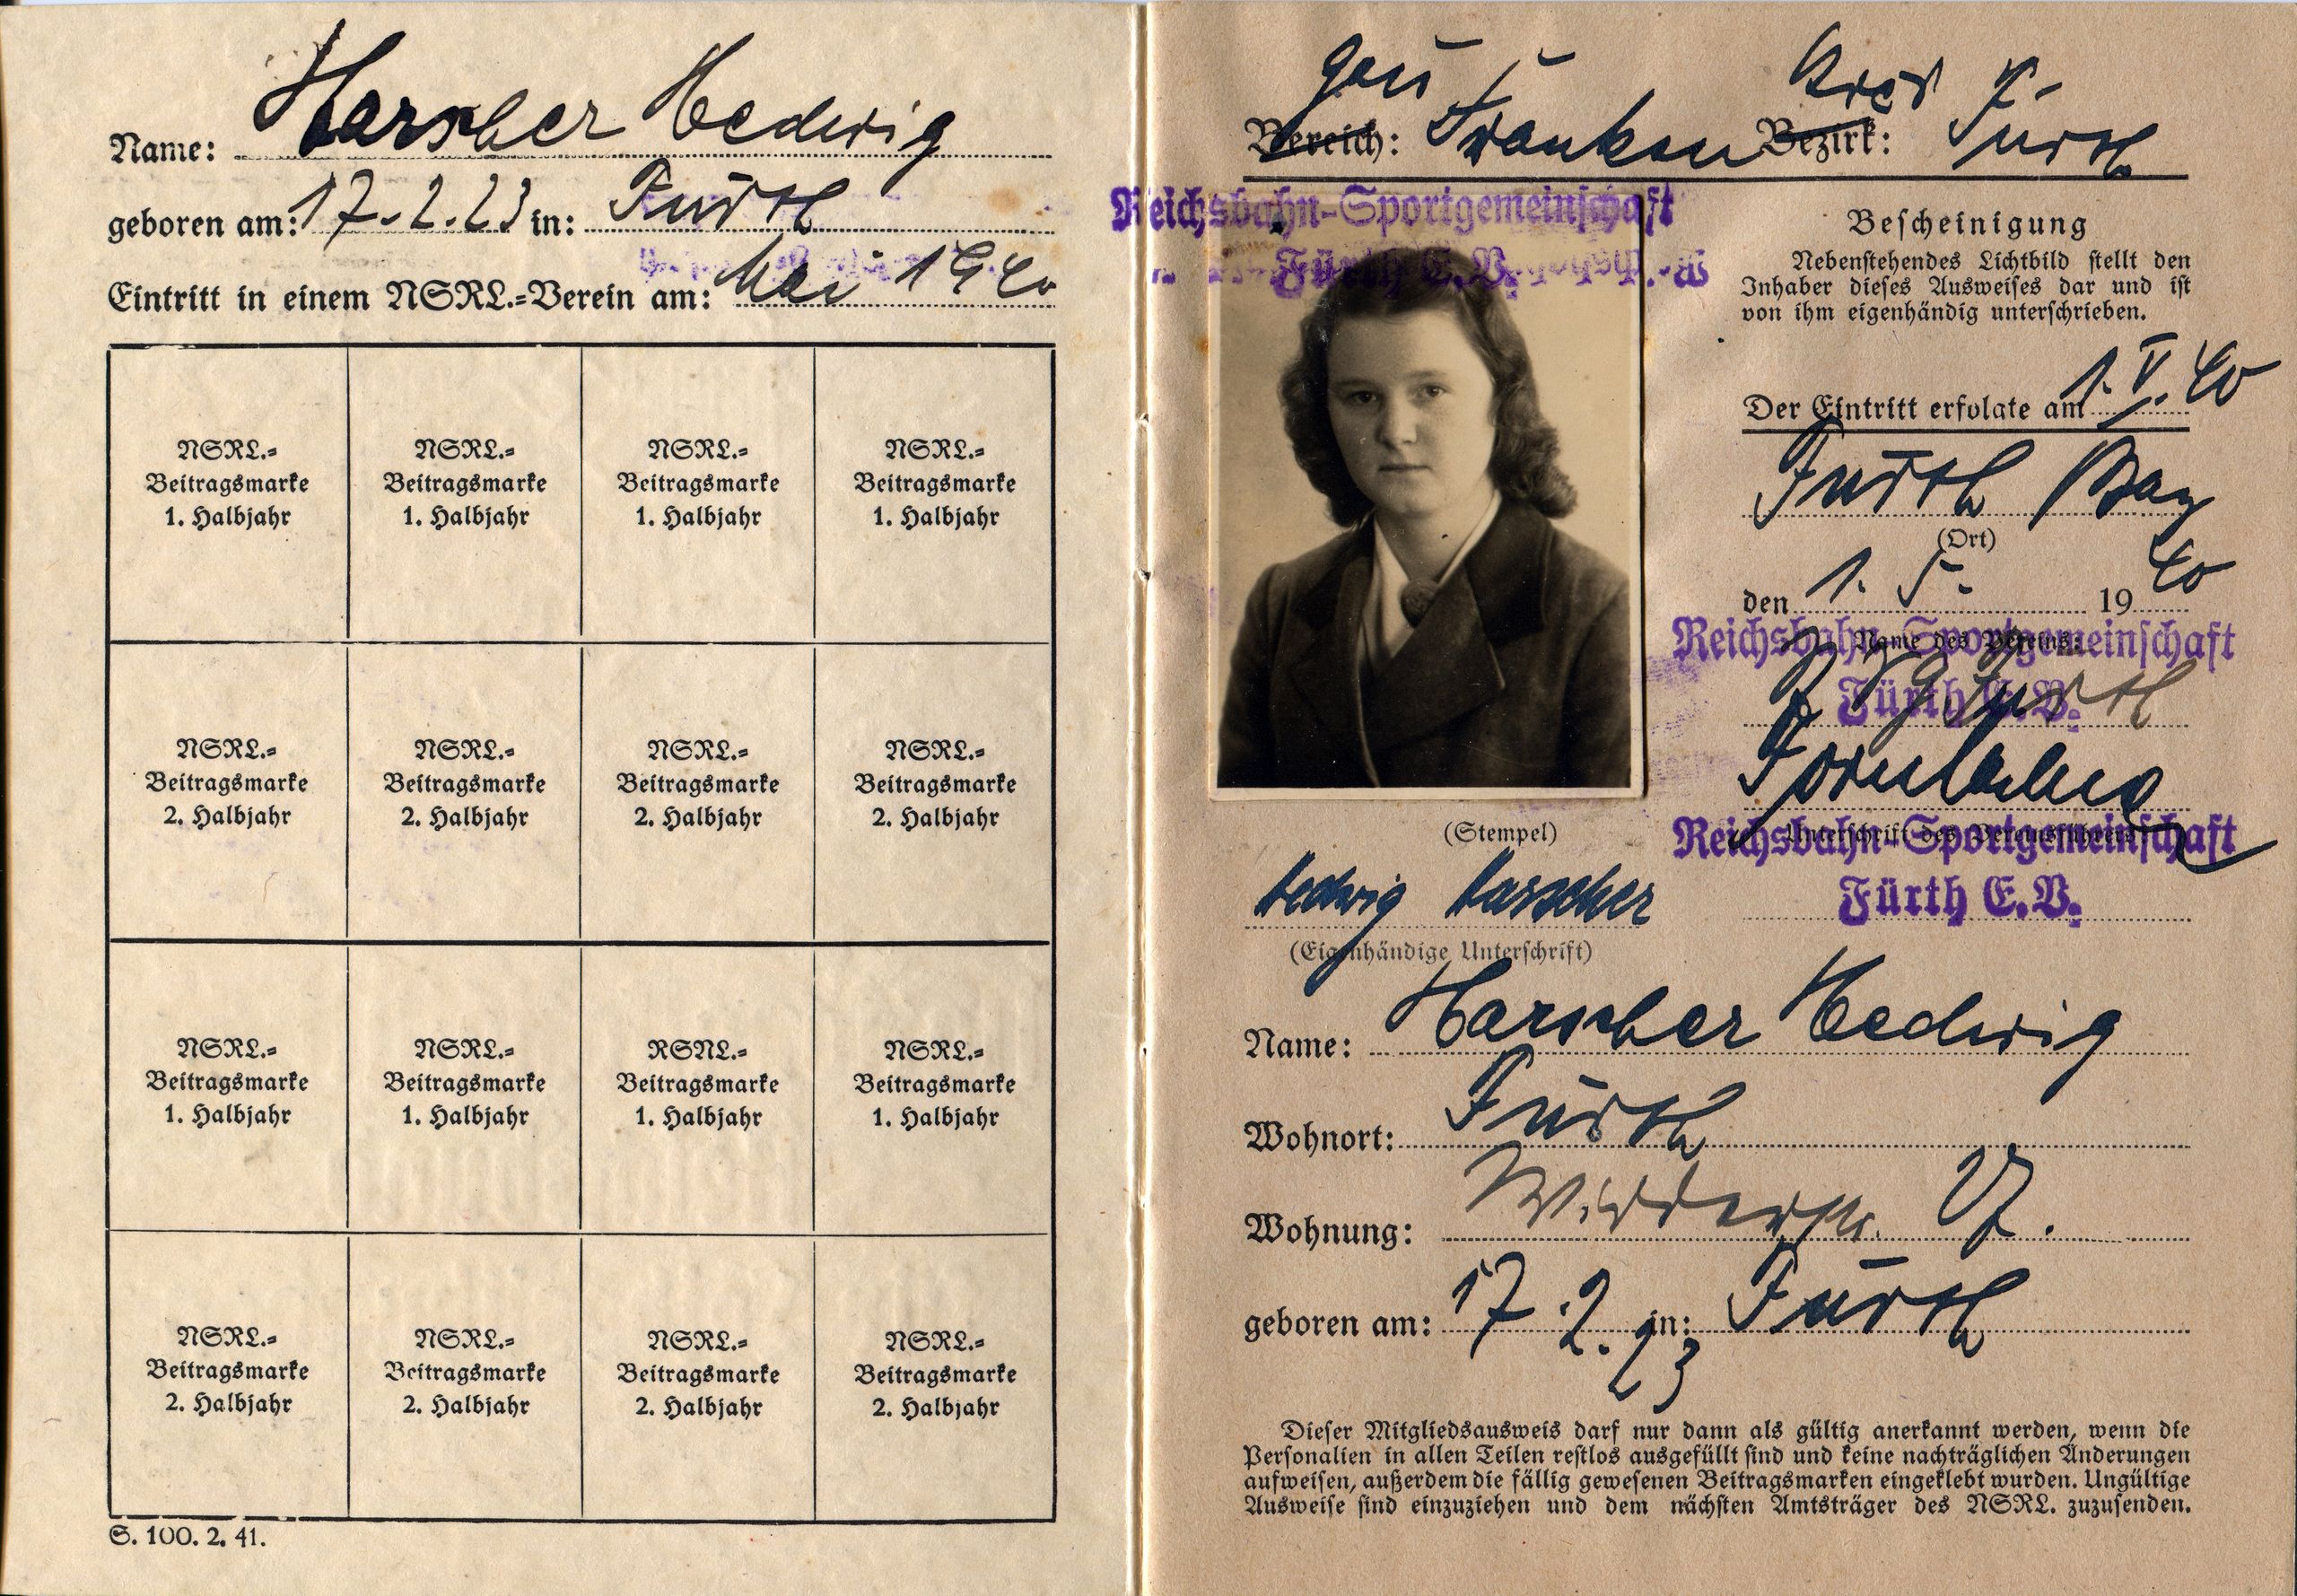 Name: Harscher Hedwig
geboren am: 17.2.23 in: Fürth
Eintritt in einem NSRL.=Verein am: Mai 1940
NSRL.= NSRL.= NSRL.= NSRL.=
Beitragsmarke Beitragsmarke Beitragsmarke Beitragsmarke
1. Halbjahr 1. Halbjahr 1. Halbjahr 1. Halbjahr
NSRL.= NSRL.= NSRL.= NSRL.=
Beitragsmarke Beitragsmarke Beitragsmarke Beitragsmarke
2. Halbjahr 2. Halbjahr 2. Halbjahr 2. Halbjahr
NSRL.= NSRL.= RSNL.= NSRL.=
Beitragsmarke Beitragsmarke Beitragsmarke Beitragsmarke
1. Halbjahr 1. Halbjahr 1. Halbjahr 1. Halbjahr
NSRL.= NSRL.= NSRL.= NSRL.=
Beitragsmarke Beitragsmarke Beitragsmarke Beitragsmarke
2. Halbjahr 2. Halbjahr 2. Halbjahr 2. Halbjahr
S. 100. 2. 41.
Gau Kreis
Bereich: Franken Bezirk: Fürth
Reichsbahn-Sportgemeinschaft
Fürth E.V.
Bescheinigung
Nebenstehendes Lichtbild stellt den
Inhaber dieses Ausweises dar und ist
von ihm eigenhändig unterschrieben.
Der Eintritt erfolgte am 1.V.40
Fürth Bay
(Ort)
den 1. 5. 19 40
Name des Vereins:
Reichsbahn-Sportgemeinschaft
Fürth E.V.
Fürth
Unterschrift des Vereinsführers
Reichsbahn-Sportgemeinschaft
Fürth E.V.
(Stempel)
Hedwig Harscher
(Eigenhändige Unterschrift)
Name: Harscher Hedwig
Wohnort: Fürth
Wohnung:
geboren am: 17.2.23 in: Fürth
Dieser Mitgliedsausweis darf nur dann als gültig anerkannt werden, wenn die
Personalien in allen Teilen restlos ausgefüllt sind und keine nachträglichen Änderungen
aufweisen, außerdem die fällig gewesenen Beitragsmarken eingeklebt wurden. Ungültige
Ausweise sind einzuziehen und dem nächsten Amtsträger des NSRL. zuzusenden.